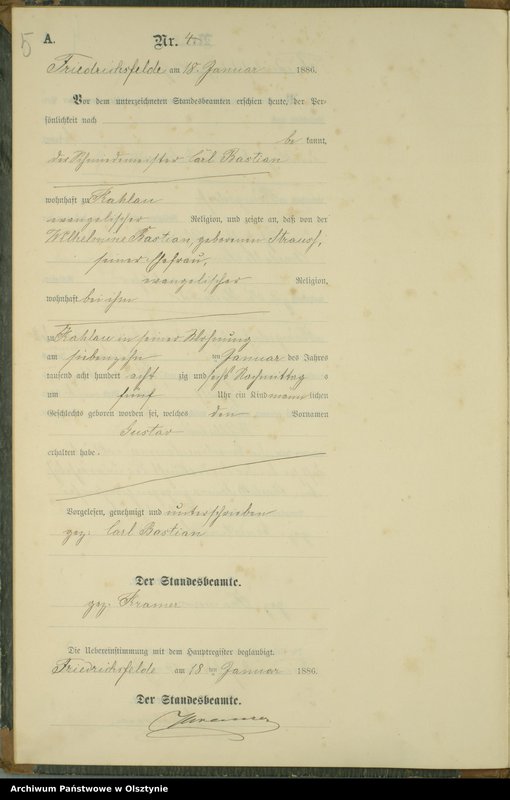 5
A.
Nr. 4.
Friedrichsfelde am 18. Januar 1886.
Vor dem unterzeichneten Standesbeamten erschien heute, der Per-
sönlichkeit nach
be kannt,
der Schmiedemeister Carl Bastian
wohnhaft zu Kahlau
evangelischer Religion, und zeigte an, daß von der
Wilhelmine Bastian, geborenen Strauss,
seiner Ehefrau,
evangelischer Religion,
wohnhaft bei ihm
zu Kahlau in seiner Wohnung
am siebenzehn ten Januar des Jahres
tausend acht hundert acht zig und sechs Nachmittag s
um fünf Uhr ein Kind männ lichen
Geschlechts geboren worden sei, welches den Vornamen
Gustav
erhalten habe.
Vorgelesen, genehmigt und unterschrieben
gez. Carl Bastian
Der Standesbeamte.
gez. Kramer
Die Uebereinstimmung mit dem Hauptregister beglaubigt.
Friedrichsfelde am 18 ten Januar 1886.
Der Standesbeamte.
Kramer
Archiwum Państwowe w Olsztynie